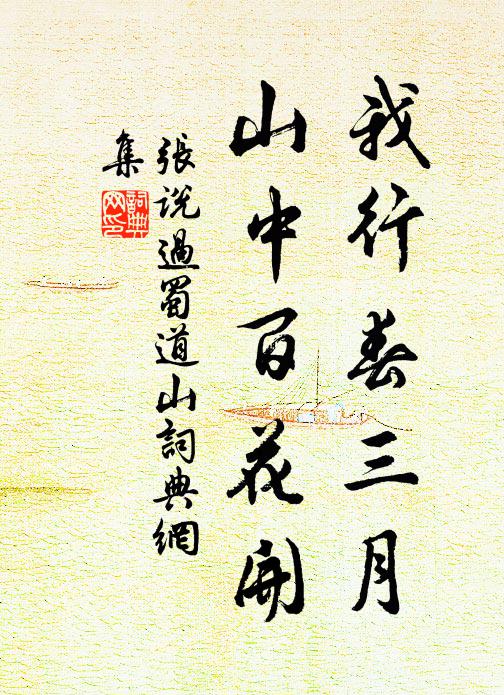 我行春三月
山中百花開
張說過蜀道山詞典網
集
詞典
网印